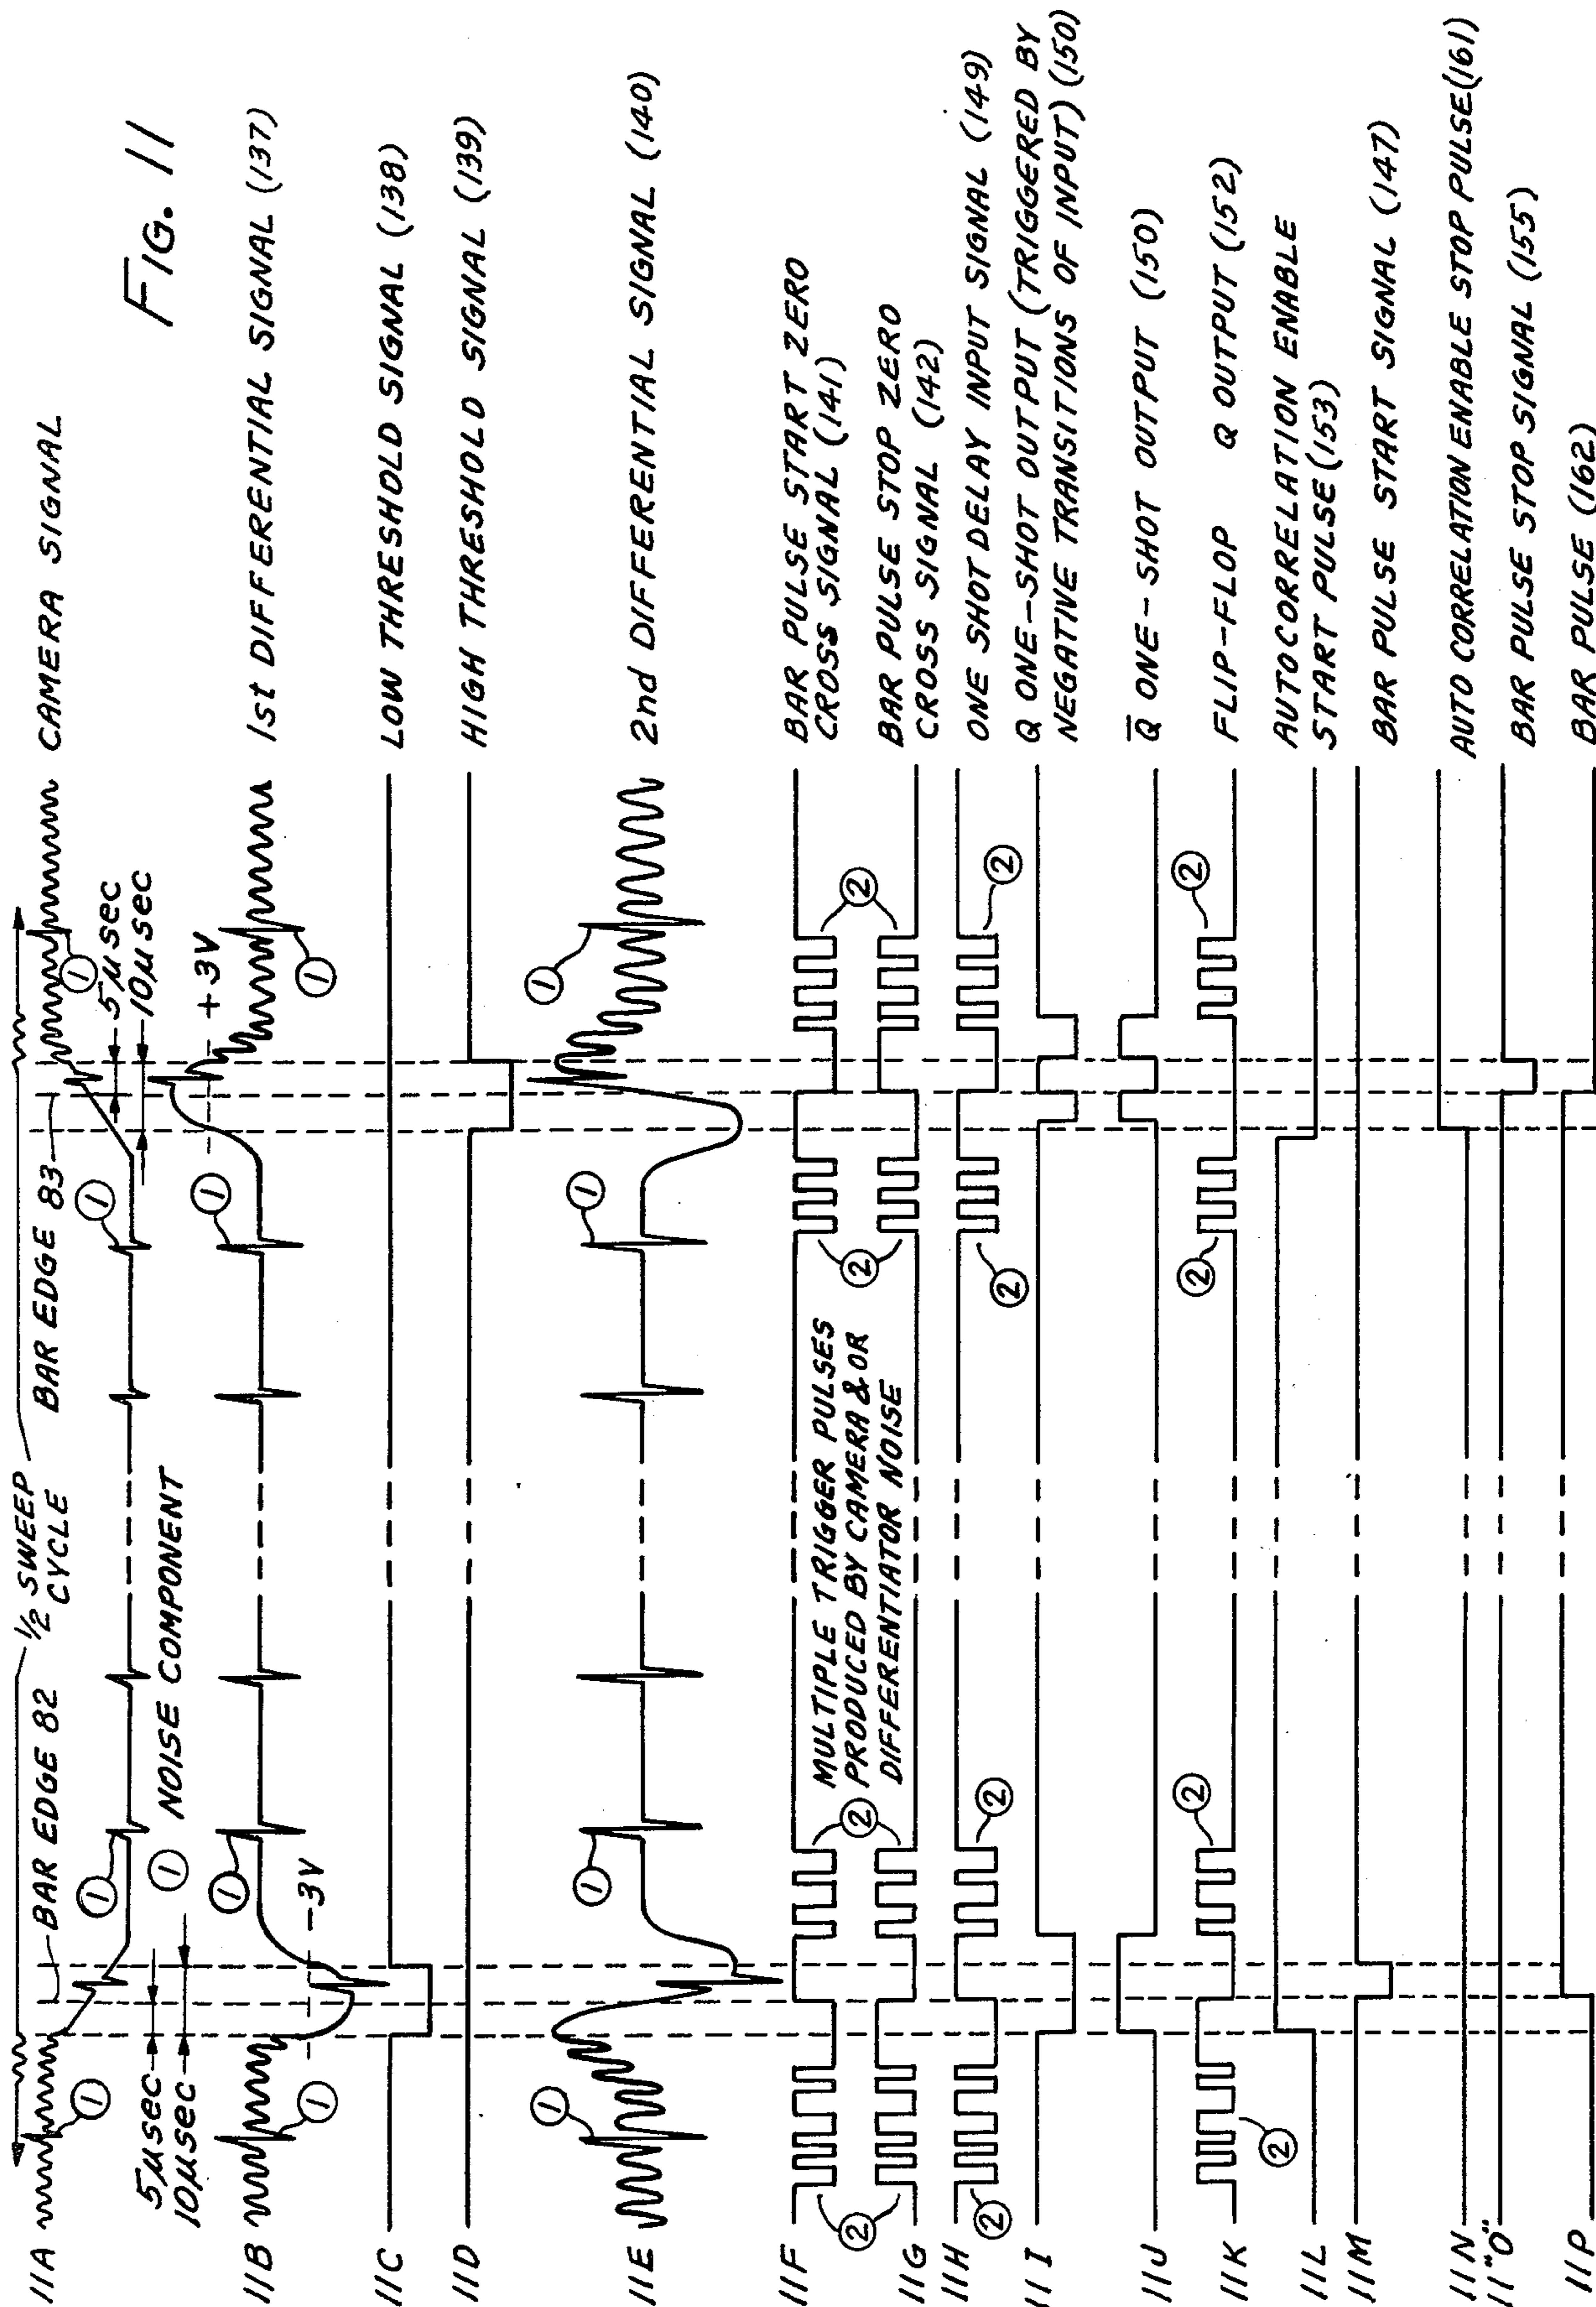 Fig. 11
11A
CAMERA SIGNAL
1/2 SWEEP
CYCLE
BAR EDGE 82
BAR EDGE 83
5μsec
10μsec
5μsec
10μsec
①
①
①
①
① NOISE COMPONENT
11B
1st DIFFERENTIAL SIGNAL (137)
-3V
+3V
①
①
①
①
11C
LOW THRESHOLD SIGNAL (138)
11D
HIGH THRESHOLD SIGNAL (139)
11E
2nd DIFFERENTIAL SIGNAL (140)
①
①
①
①
11F
BAR PULSE START ZERO
CROSS SIGNAL (141)
MULTIPLE TRIGGER PULSES
② PRODUCED BY CAMERA & OR
DIFFERENTIATOR NOISE
②
②
②
11G
BAR PULSE STOP ZERO
CROSS SIGNAL (142)
11H
ONE SHOT DELAY INPUT SIGNAL (149)
②
②
②
②
11I
Q ONE-SHOT OUTPUT (TRIGGERED BY
NEGATIVE TRANSITIONS OF INPUT) (150)
11J
Q̅ ONE-SHOT OUTPUT (150)
11K
FLIP-FLOP Q OUTPUT (152)
②
②
②
②
11L
AUTOCORRELATION ENABLE
START PULSE (153)
11M
BAR PULSE START SIGNAL (147)
11N
AUTO CORRELATION ENABLE STOP PULSE (161)
11"O"
BAR PULSE STOP SIGNAL (155)
11P
BAR PULSE (162)